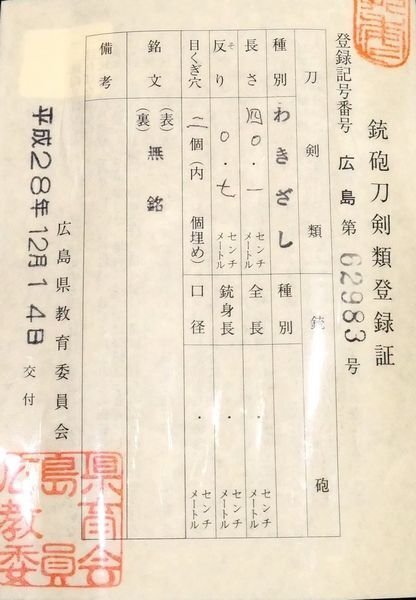 銃砲刀剣類登録証
登録記号番号 広島 第 62983 号
刀剣類
種別 わきざし
長さ 四〇・一 センチメートル
反り 〇・七 センチメートル
そ
目くぎ穴 二個(内 個埋め)
銃砲
種別
全長 ・ センチメートル
銃身長 ・ センチメートル
口径 ・ センチメートル
銘文 (表) 無銘
(裏)
備考
平成28年12月14日 交付
広島県教育委員会
広島県
教育
委員会